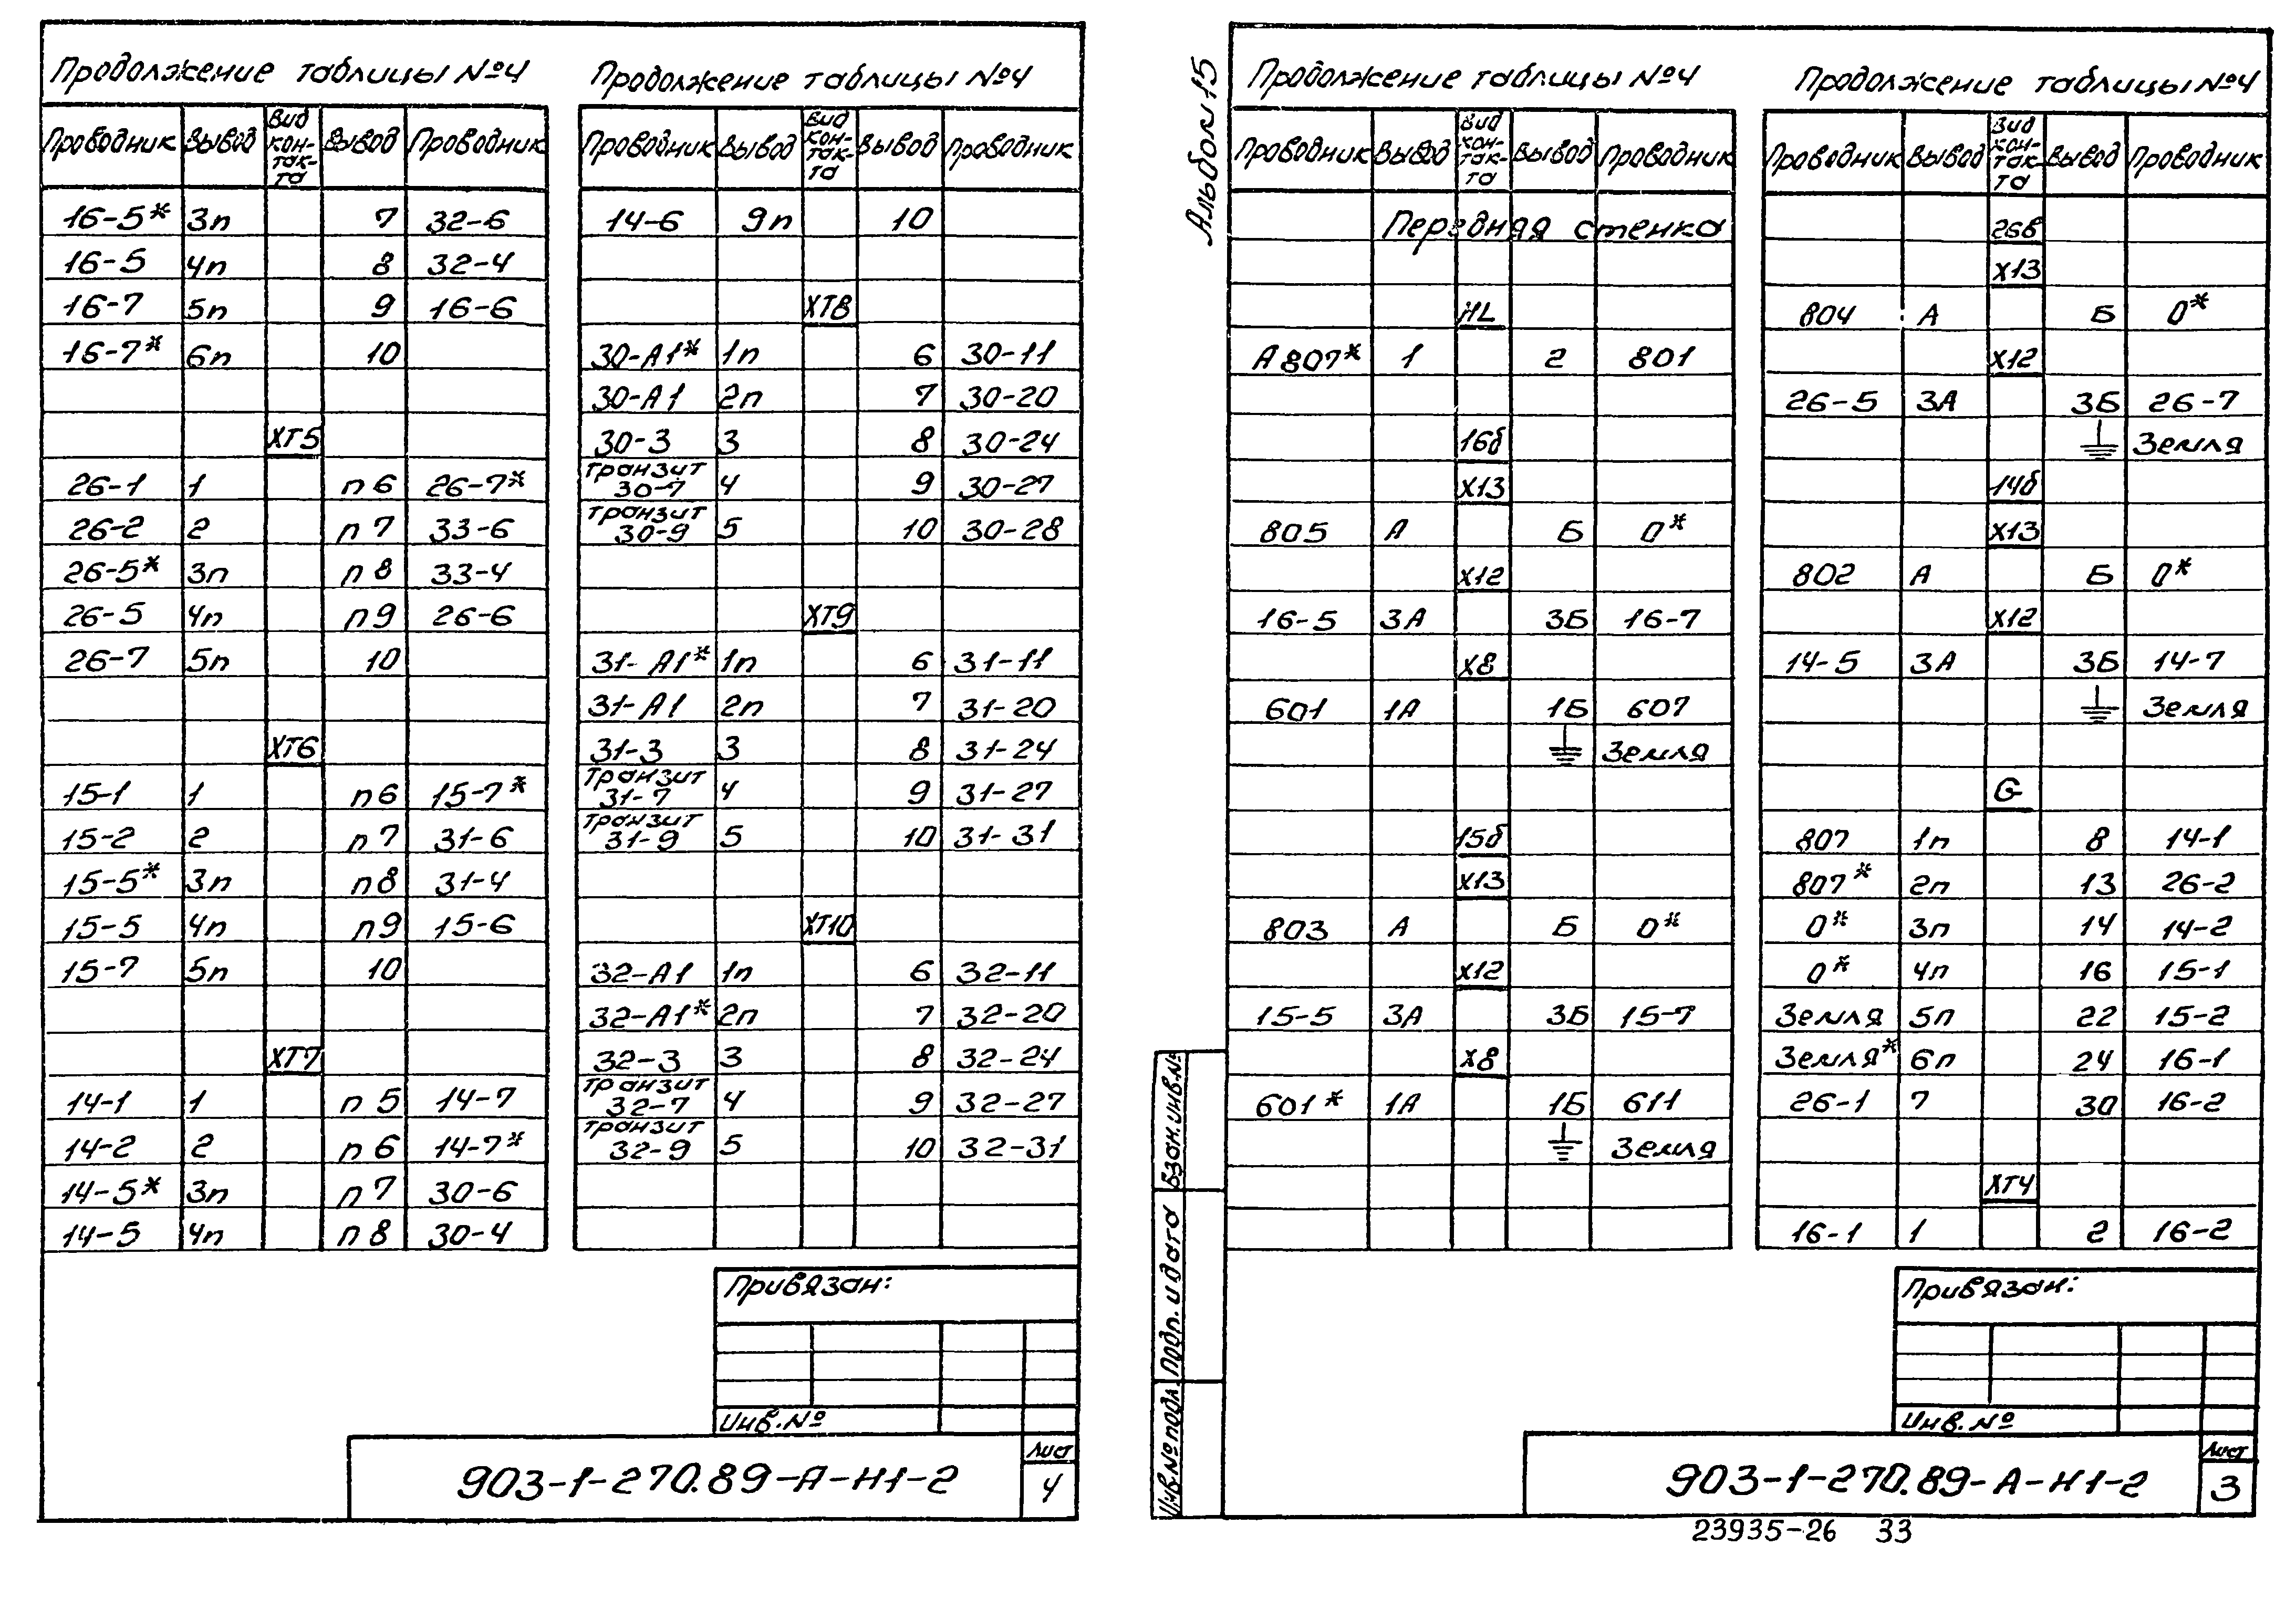 Продолжение таблицы №4
Проводник Вывод Вид кон-так-та Вывод Проводник
16-5* 3п 7 32-6
16-5 4п 8 32-4
16-7 5п 9 16-6
16-7* 6п 10
ХТ5
26-1 1 п6 26-7*
26-2 2 п7 33-6
26-5* 3п п8 33-4
26-5 4п п9 26-6
26-7 5п 10
ХТ6
15-1 1 п6 15-7*
15-2 2 п7 31-6
15-5* 3п п8 31-4
15-5 4п п9 15-6
15-7 5п 10
ХТ7
14-1 1 п5 14-7
14-2 2 п6 14-7*
14-5* 3п п7 30-6
14-5 4п п8 30-4
Продолжение таблицы №4
Проводник Вывод Вид кон-так-та Вывод Проводник
14-6 9п 10
ХТ8
30-А1* 1п 6 30-11
30-А1 2п 7 30-20
30-3 3 8 30-24
транзит 30-7 4 9 30-27
транзит 30-9 5 10 30-28
ХТ9
31-А1* 1п 6 31-11
31-А1 2п 7 31-20
31-3 3 8 31-24
Транзит 31-7 4 9 31-27
Транзит 31-9 5 10 31-31
ХТ10
32-А1 1п 6 32-11
32-А1* 2п 7 32-20
32-3 3 8 32-24
транзит 32-7 4 9 32-27
транзит 32-9 5 10 32-31
Привязан:
Инв.№
903-1-270.89-А-Н1-2
Лист
4
Альбом 15
Продолжение таблицы №4
Проводник Вывод Вид кон-так-та Вывод Проводник
Передняя стенка
HL
А807* 1 2 801
16б
Х13
805 А Б 0*
Х12
16-5 3А 3Б 16-7
Х8
601 1А 1Б 607
⏚ Земля
15б
Х13
803 А Б 0*
Х12
15-5 3А 3Б 15-7
Х8
601* 1А 1Б 611
⏚ Земля
Продолжение таблицы №4
Проводник Вывод Вид кон-так-та Вывод Проводник
26в
Х13
804 А Б 0*
Х12
26-5 3А 3Б 26-7
⏚ Земля
14б
Х13
802 А Б 0*
Х12
14-5 3А 3Б 14-7
⏚ Земля
G
807 1п 8 14-1
807* 2п 13 26-2
0* 3п 14 14-2
0* 4п 16 15-1
Земля 5п 22 15-2
Земля* 6п 24 16-1
26-1 7 30 16-2
ХТ4
16-1 1 2 16-2
Взам. инв.№
Подп. и дата
Инв.№ подл.
Привязан:
Инв.№
903-1-270.89-А-Н1-2
Лист
3
23935-26 33